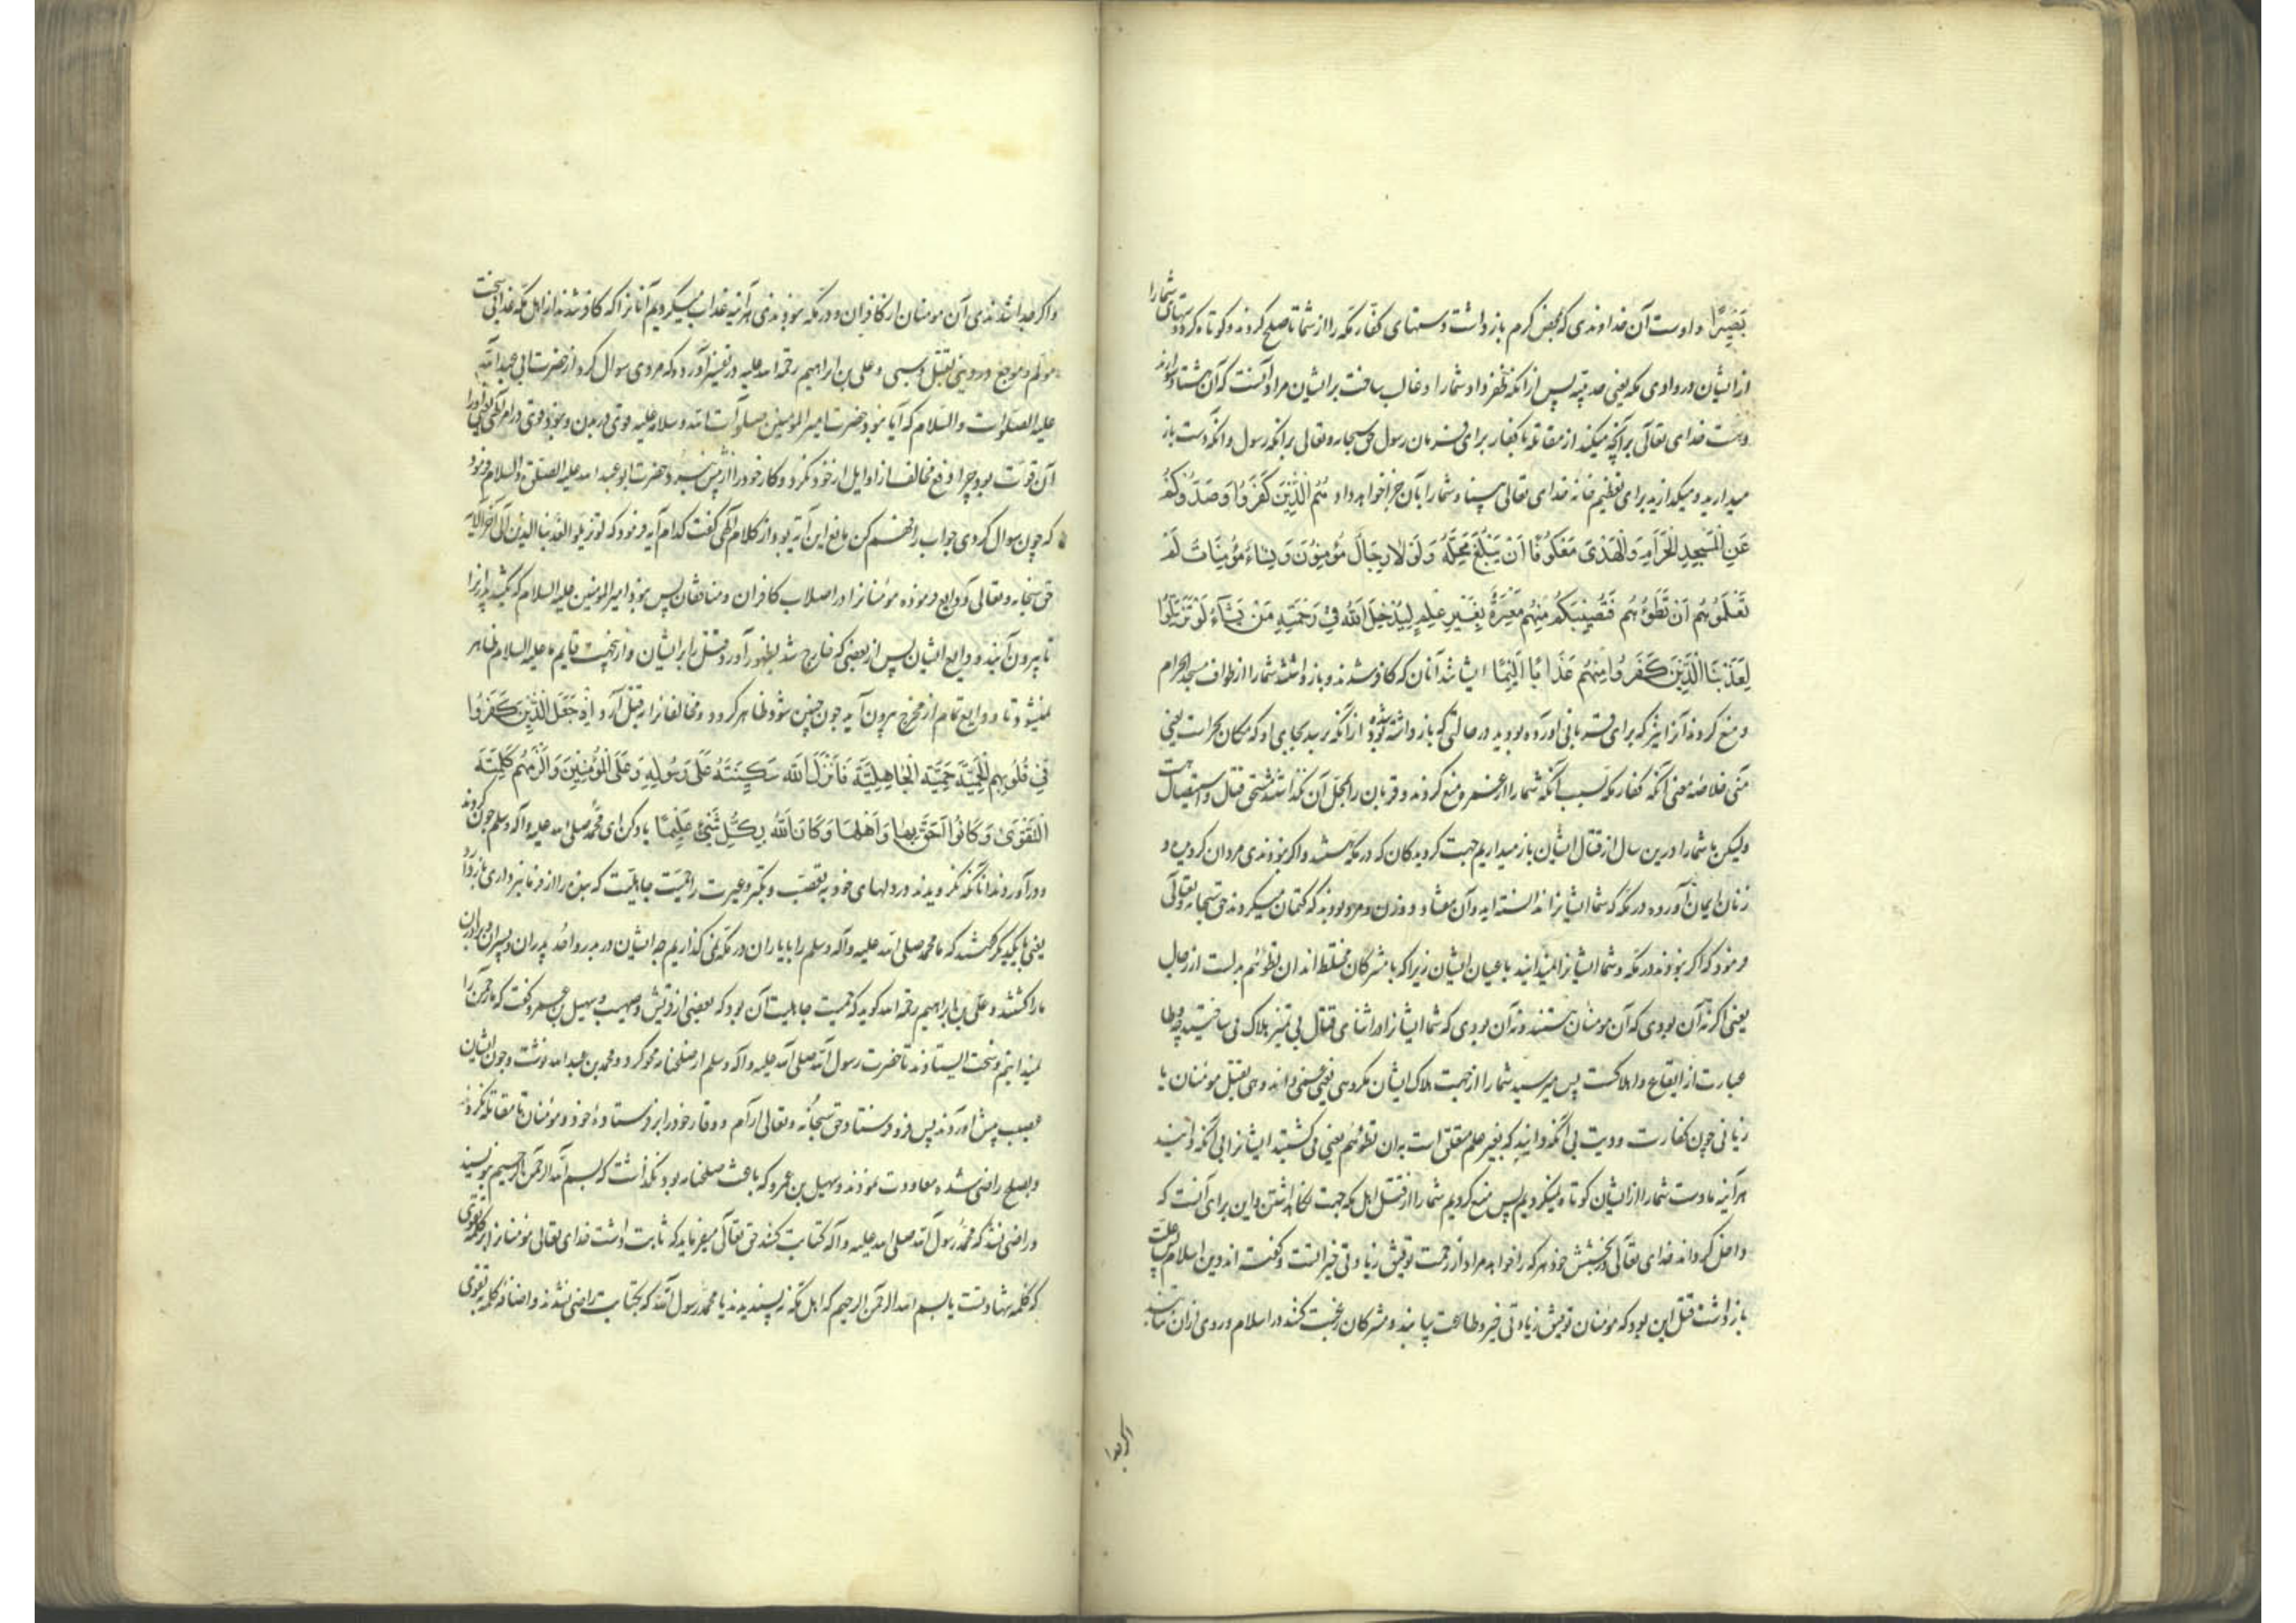 بَصِیرًا و اوست آن خداوندی که بمحض کرم باز داشت دستهای کفار مکه را از شما تا صلح کردند و کوتاه کرد دستهای شما را
از ایشان در وادی مکه یعنی حدیبیه پس از انکه ظفر داد شما را و غالب ساخت بر ایشان مراد آنست که آن هشتاد
وهست خدای تعالی بر آنچه میکنید از مقاتله با کفار برای فرمان رسول حق سبحانه و تعالی برانکه رسول و انکه دست باز
میدارید و میکذارید برای تعظیم خانه خدای تعالی بینا و شما را بآن جزا خواهد داد هُمُ الَّذِینَ کَفَرُوا وَصَدُّوکُمْ
عَنِ الْمَسْجِدِ الْحَرَامِ وَالْهَدْیَ مَعْکُوفًا اَنْ یَبْلُغَ مَحِلَّهُ وَلَوْلَا رِجَالٌ مُؤْمِنُونَ وَنِسَاءٌ مُؤْمِنَاتٌ لَمْ
تَعْلَمُوهُمْ اَنْ تَطَؤُهُمْ فَتُصِیبَکُمْ مِنْهُمْ مَعَرَّةٌ بِغَیْرِ عِلْمٍ لِیُدْخِلَ اللّٰهُ فِی رَحْمَتِهِ مَنْ یَشَآءُ لَوْ تَزَیَّلُوا
لَعَذَّبْنَا الَّذِینَ کَفَرُوا مِنْهُمْ عَذَابًا اَلِیمًا ایشانند آنان که کافر شدند و باز داشتند شما را از طواف مسجد الحرام
و منع کردند آنرا نیز که برای قربانی آورده بودید در حالتی که باز داشته شده بود از انکه برسد بجای او که مکان نحر است یعنی
منی خلاصه معنی انکه کفار مکه بسبب انکه شما را از عمره منع کردند و قربان را بمحل آن نکذاشتند مستحق قتال و استیصال
ولیکن ما شما را درین سال از قتال ایشان باز میداریم جهت کرویدکان که در مکه هستند و اکر نبودندی مردان کرویده و
زنان ایمان آورده در مکه که شما ایشانرا ندانسته اید و آن هفتاد و دو زن و مرد بودند که کتمان میکردند حق سبحانه و تعالی
فرمود که اکر نبودند در مکه و شما ایشانرا نمیدانید باعیان ایشان زیرا که با مشرکان مختلط اند ان تطؤهم بدلست از رجال
یعنی اکر نه آن بودی که آن مومنان هستند و نه آن بودی که شما ایشانرا در اثنای قتال بی تمیز هلاک می ساختید چه وطا
عبارت از ایقاع و اهلاکست پس میرسید شما را از جهت هلاک ایشان مکروهی یعنی و هی بقتل مومنان یا
زیانی چون کفارت و دیت بی انکه دانید که بغیر علم متعلق است به ان تطؤهم یعنی می کشتید ایشانرا بی انکه دانید
هر آینه ما دست شما را از ایشان کوتاه نمیکردیم پس منع کردیم شما را از قتل اهل مکه جهت نکاهداشتن و این برای آنست که
داخل کرداند خدای تعالی در بخشش خود هر که را خواهد مراد از رحمت توفیق زیادتی خیر است و کفته اند دین اسلام پس علت
باز داشتن قتل این بود که مومنان توفیق زیادتی خیر و طاعت یابند و مشرکان رغبت کنند در اسلام و روی ازان نتابند
اکر جدا
و اکر جدا شدندی آن مومنان از کافران و در مکه نبودندی هر آینه عذاب میکردیم آنانرا که کافر شدند از اهل مکه عذابی سخت
مولم و موجع در دنیا بقتل و سبی و علی بن ابراهیم رحمه الله علیه در تفسیر آورده که مردی سوال کرد از حضرت ابی عبد الله
علیه الصلوات والسلام که آیا نبود حضرت امیر المومنین صلوات الله و سلامه علیه قوی در بدن و نبود قوی در امر الهی
آن قوت بود چرا دفع مخالف از اوایل از خود نکرد و کار خود را از پیش نبرد حضرت ابو عبد الله علیه الصلوة والسلام فرمود
که چون سوال کردی جواب را فهم کن مانع این آیه بود از کلام الهی گفت کدام آیه فرمود که لو تزیلوا لعذبنا الذین الی آخر الایه
حق سبحانه و تعالی ودایع فرموده مومنانرا در اصلاب کافران و منافقان پس نبود امیر المومنین علیه السلام که بکشد پدرانرا
تا بیرون آیند ودایع ایشان پس از بعضی که خارج شد بظهور آورد قتل را بر ایشان و ازینجهت قایم ما علیه السلام ظاهر
نمیشود تا ودایع تمام از مخرج بیرون آید چون چنین شود ظاهر کردد و مخالفانرا بقتل آرد اِذْ جَعَلَ الَّذِینَ کَفَرُوا
فِی قُلُوبِهِمُ الْحَمِیَّةَ حَمِیَّةَ الْجَاهِلِیَّةِ فَاَنْزَلَ اللّٰهُ سَکِینَتَهُ عَلَی رَسُولِهِ وَعَلَی الْمُؤْمِنِینَ وَاَلْزَمَهُمْ کَلِمَةَ
التَّقْوَی وَکَانُوا اَحَقَّ بِهَا وَاَهْلَهَا وَکَانَ اللّٰهُ بِکُلِّ شَیْءٍ عَلِیمًا یاد کن ای محمد صلی الله علیه و آله و سلم چون کردند
و در آوردند آنانکه نکرویدند در دلهای خود به تعصب و تکبر و غیرت را حمیت جاهلیت که بنده را از فرمانبرداری باز دارد
یعنی با یکدیکر کفتند که ما محمد صلی الله علیه و آله و سلم را با یاران در مکه نمی کذاریم چه ایشان در بدر و احد پدران و پسران و برادران
ما را کشتند و علی بن ابراهیم رحمه الله کوید که حمیت جاهلیت آن بود که بعضی از قریش و صهیب و سهیل بن عمرو کفت که ما رحمن را
نمیدانیم و سخت ایستادند تا حضرت رسول الله صلی الله علیه و آله و سلم از صلحنامه محو کرد و محمد بن عبد الله نوشت و چون ایشان
عصبیت پیش آوردند پس فرو فرستاد حق سبحانه و تعالی آرام و وقار خود را بر فرستاده خود و مومنان تا مقاتله نکردند
و بصلح راضی شده معاودت نمودند و سهیل بن عمرو که باعث صلحنامه بود نکذاشت که بسم الله الرحمن الرحیم نویسند
و راضی نشد که محمد رسول الله صلی الله علیه و آله کتابت کنند حق تعالی میفرماید که ثابت داشت خدای تعالی مومنانرا بر کلمه تقوی
که کلمه شهادتست یا بسم الله الرحمن الرحیم که اهل مکه نه پسندیدند یا محمد رسول الله که بکتابت راضی نشدند و اضافه کلمه به تقوی